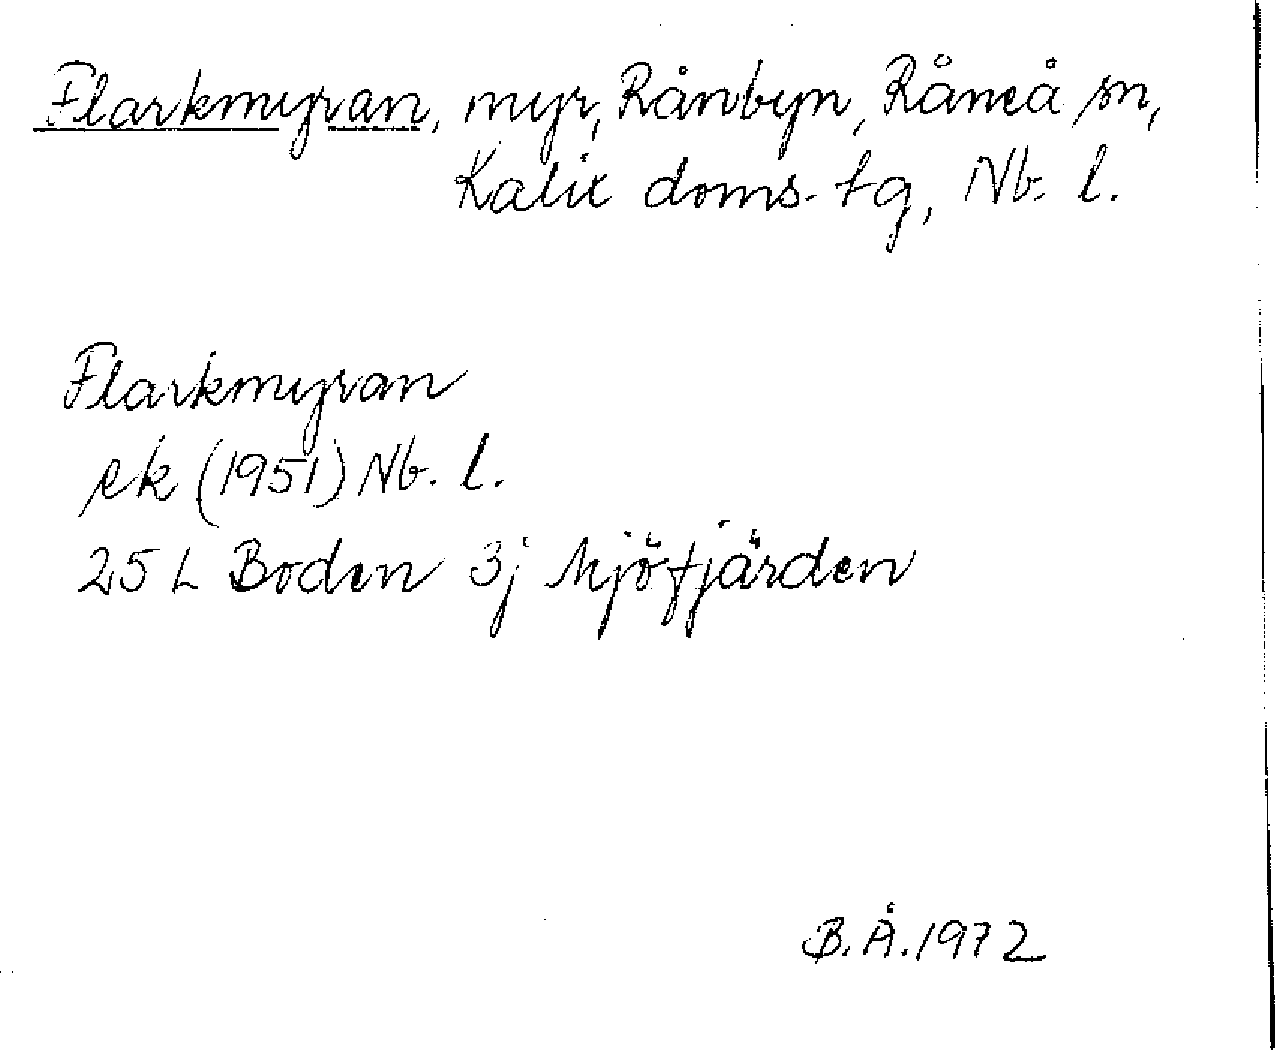 Flarkmyran, myr, Rånbyn, Råneå sn,
Kalix doms. tg, Nb. l.
Flarkmyran
ek (1951) Nb. l.
25 L Boden 3j Mjöfjärden
B.Å. 1972